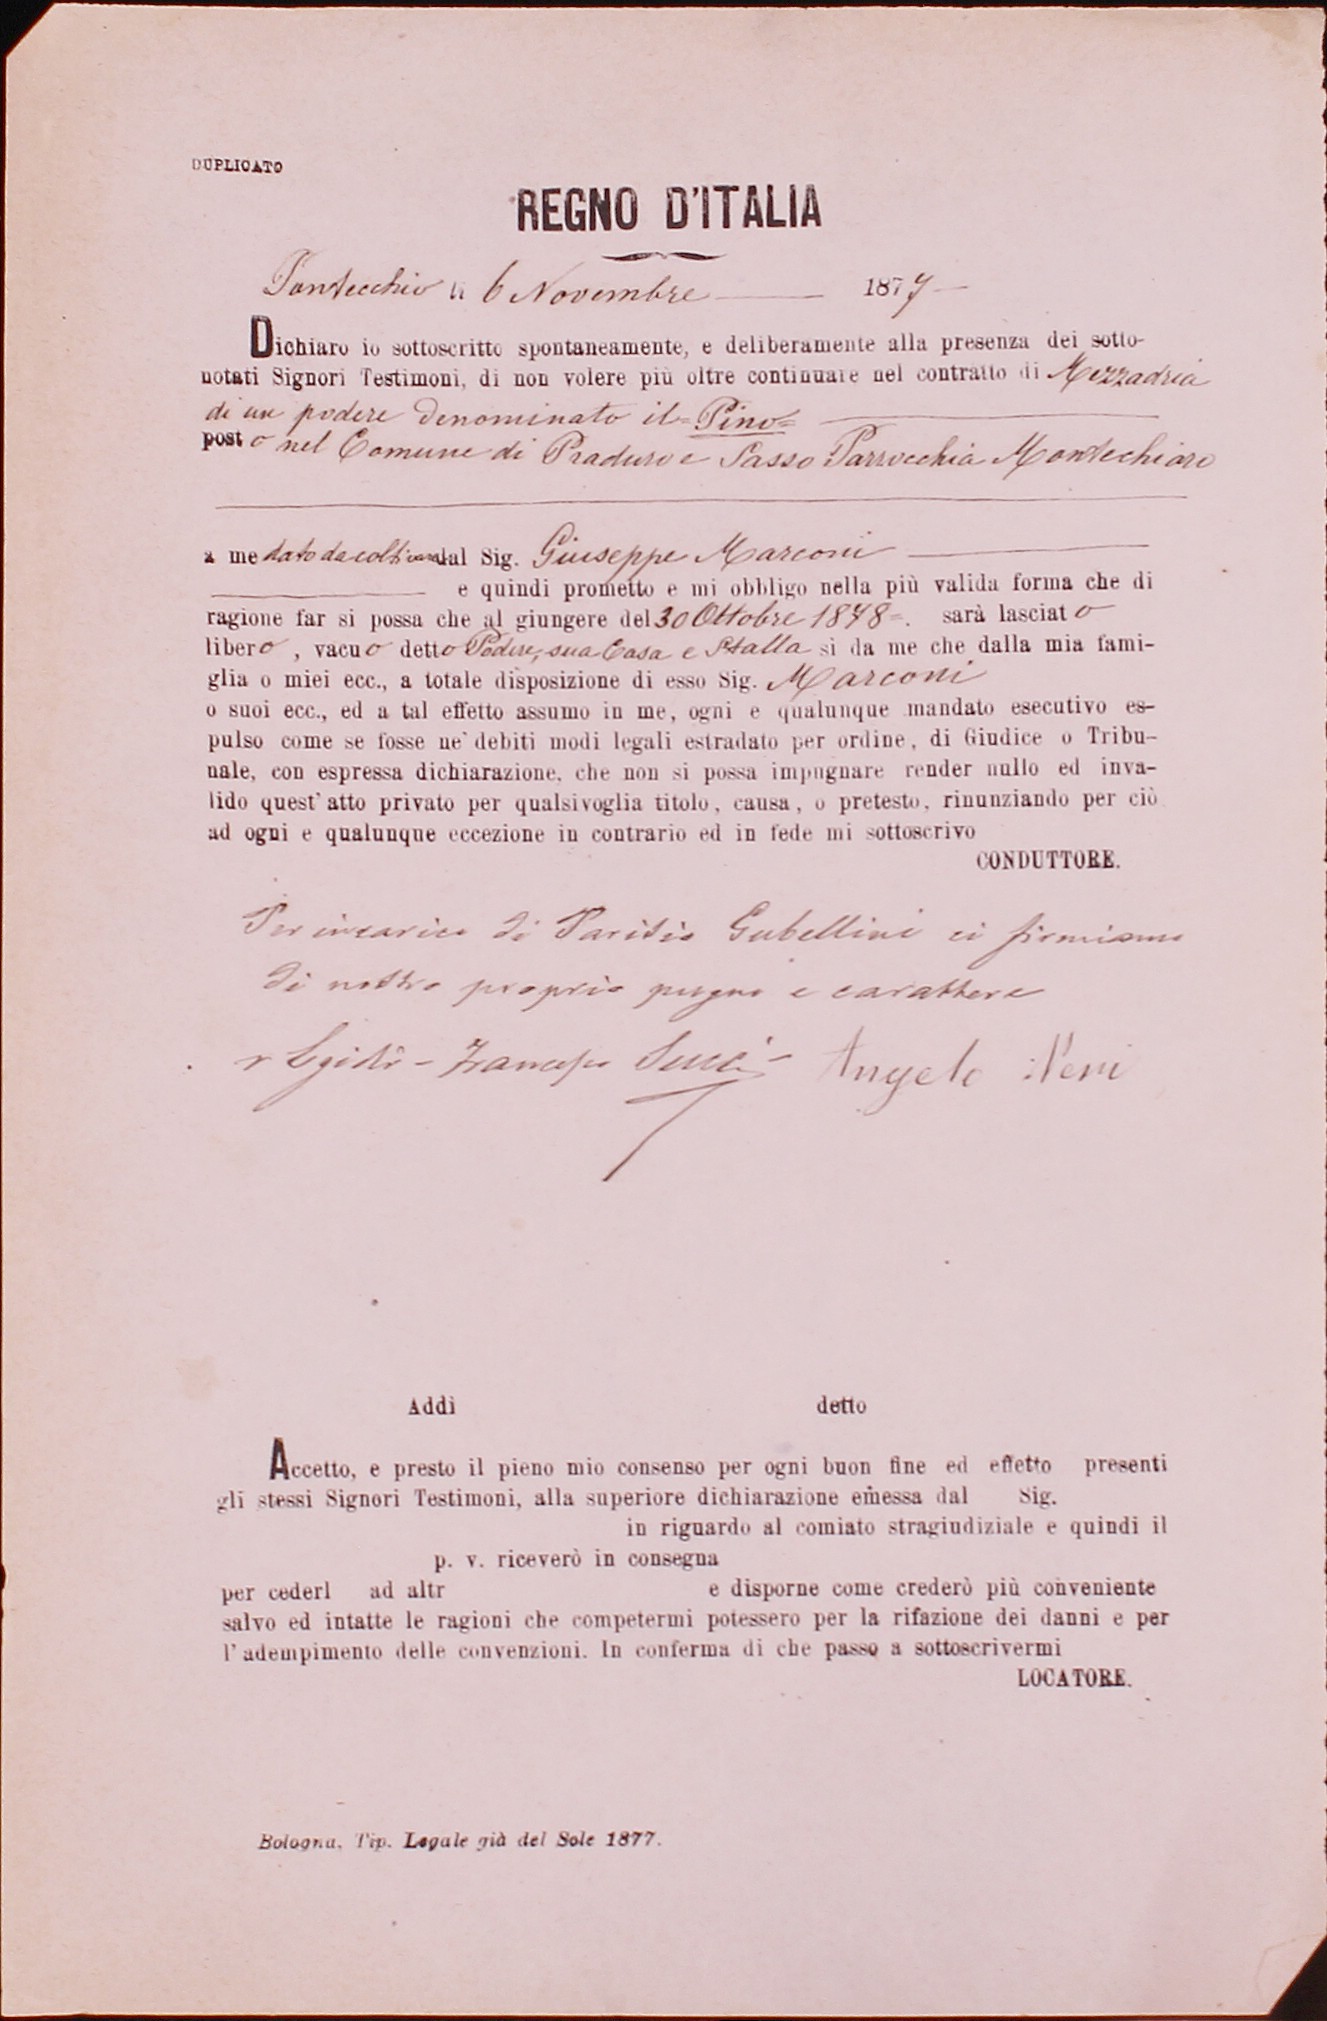 DUPLICATO
REGNO D'ITALIA
Pontecchio li 6 Novembre 1877
Dichiaro io sottoscritto spontaneamente, e deliberamente alla presenza dei sotto-
notati Signori Testimoni, di non volere più oltre continuare nel contratto di Mezzadria
di un podere denominato il =Pino=
posto nel Comune di Praduro e Sasso Parrocchia Montechiaro
a me dato da coltivare dal Sig. Giuseppe Marconi
e quindi prometto e mi obbligo nella più valida forma che di
ragione far si possa che al giungere del 30 Ottobre 1878=. sarà lasciato
libero, vacuo detto Podere, sua Casa e Stalla sì da me che dalla mia fami-
glia o miei ecc., a totale disposizione di esso Sig. Marconi
o suoi ecc., ed a tal effetto assumo in me, ogni e qualunque mandato esecutivo es-
pulso come se fosse ne' debiti modi legali estradato per ordine, di Giudice o Tribu-
nale, con espressa dichiarazione, che non si possa impugnare render nullo ed inva-
lido quest' atto privato per qualsivoglia titolo, causa, o pretesto, rinunziando per ciò
ad ogni e qualunque eccezione in contrario ed in fede mi sottoscrivo
CONDUTTORE.
Per incarico di Paridio Gubellini ci firmiamo
di nostro proprio pugno e carattere
Francesco Succi - Angelo Neri
Addì detto
Accetto, e presto il pieno mio consenso per ogni buon fine ed effetto presenti
gli stessi Signori Testimoni, alla superiore dichiarazione emessa dal Sig.
in riguardo al comiato stragiudiziale e quindi il
p. v. riceverò in consegna
per cederl ad altr e disporne come crederò più conveniente
salvo ed intatte le ragioni che competermi potessero per la rifazione dei danni e per
l' adempimento delle convenzioni. In conferma di che passo a sottoscrivermi
LOCATORE.
Bologna, Tip. Legale già del Sole 1877.